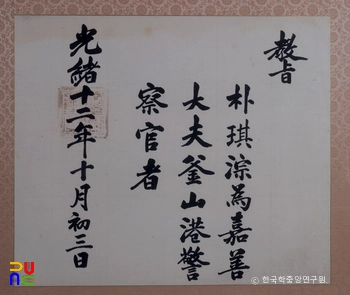 教旨
朴琪淙為嘉善
大夫釜山港警
察官者
光緒十二年十月初三日
© 한국학중앙연구원